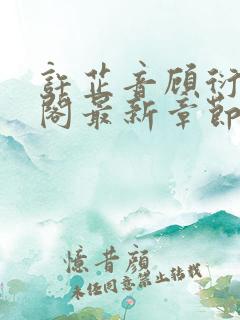 許芷音顾衍
阁最新章節
憶昔顔
未经同意禁止转载